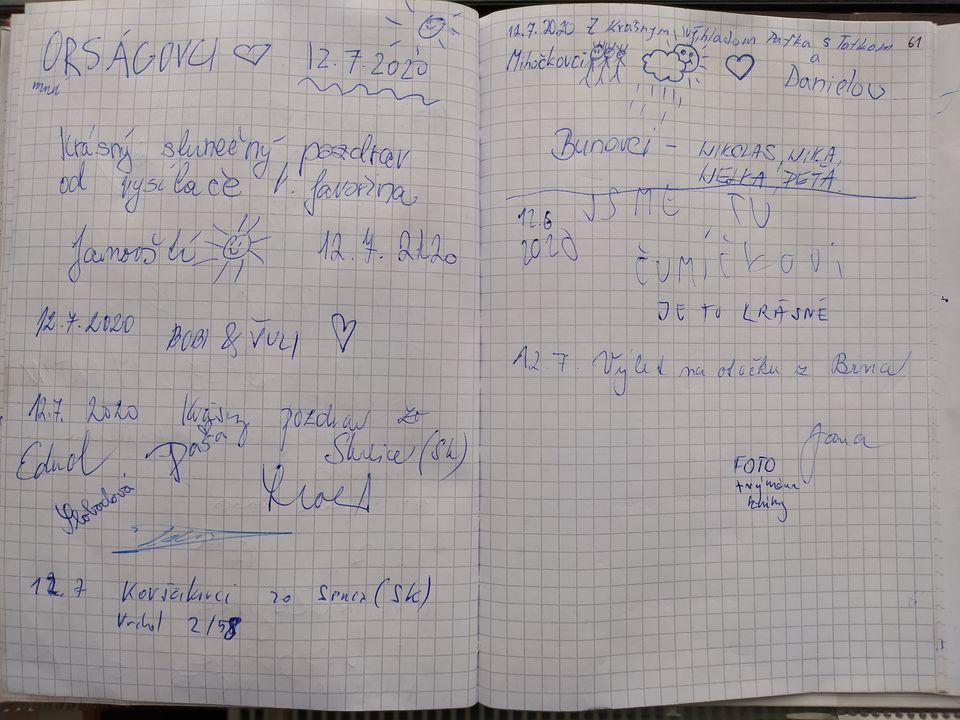 ORSÁGOVCI 12.7.2020
mnn
Krásný slunečný pozdrav
od vysílače V. Javořina
Janovští 12.7.2120
12.7.2020 BOBI & ŤULI
12.7. 2020 Krásny pozdrav zo
Skalice (SK)
Slobodová
12.7 zo Senca (SK)
Vrchol 2/58
12.7.2020 Z krásnym výhľadom Paťka s Tatkom 61
Mihočkovci a
Danielov
Bunovci - NIKOLAS, NIKA,
NELKA, PEŤA
12.6 JSME TU
2020 ČUMÍČKOVI
JE TO KRÁSNÉ
12.7. Výlet na otočku z Brna
Jana
FOTO
+ výměna
knihy